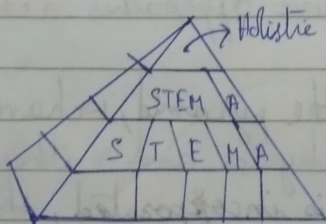 Holistic
STEM A
S T E M A